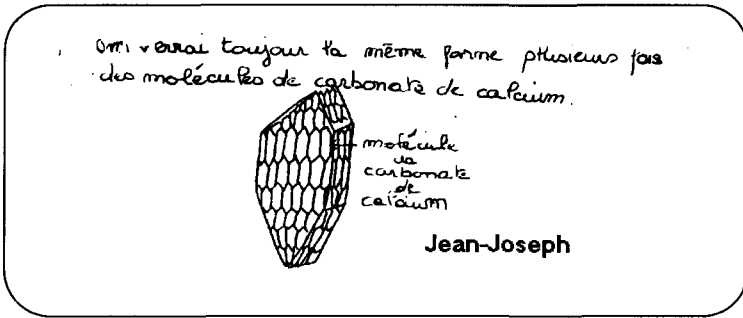 on verrai toujour la même forme plusieurs fois
des molécules de carbonate de calcium.
molécule
de
carbonate
de
calcium
Jean-Joseph